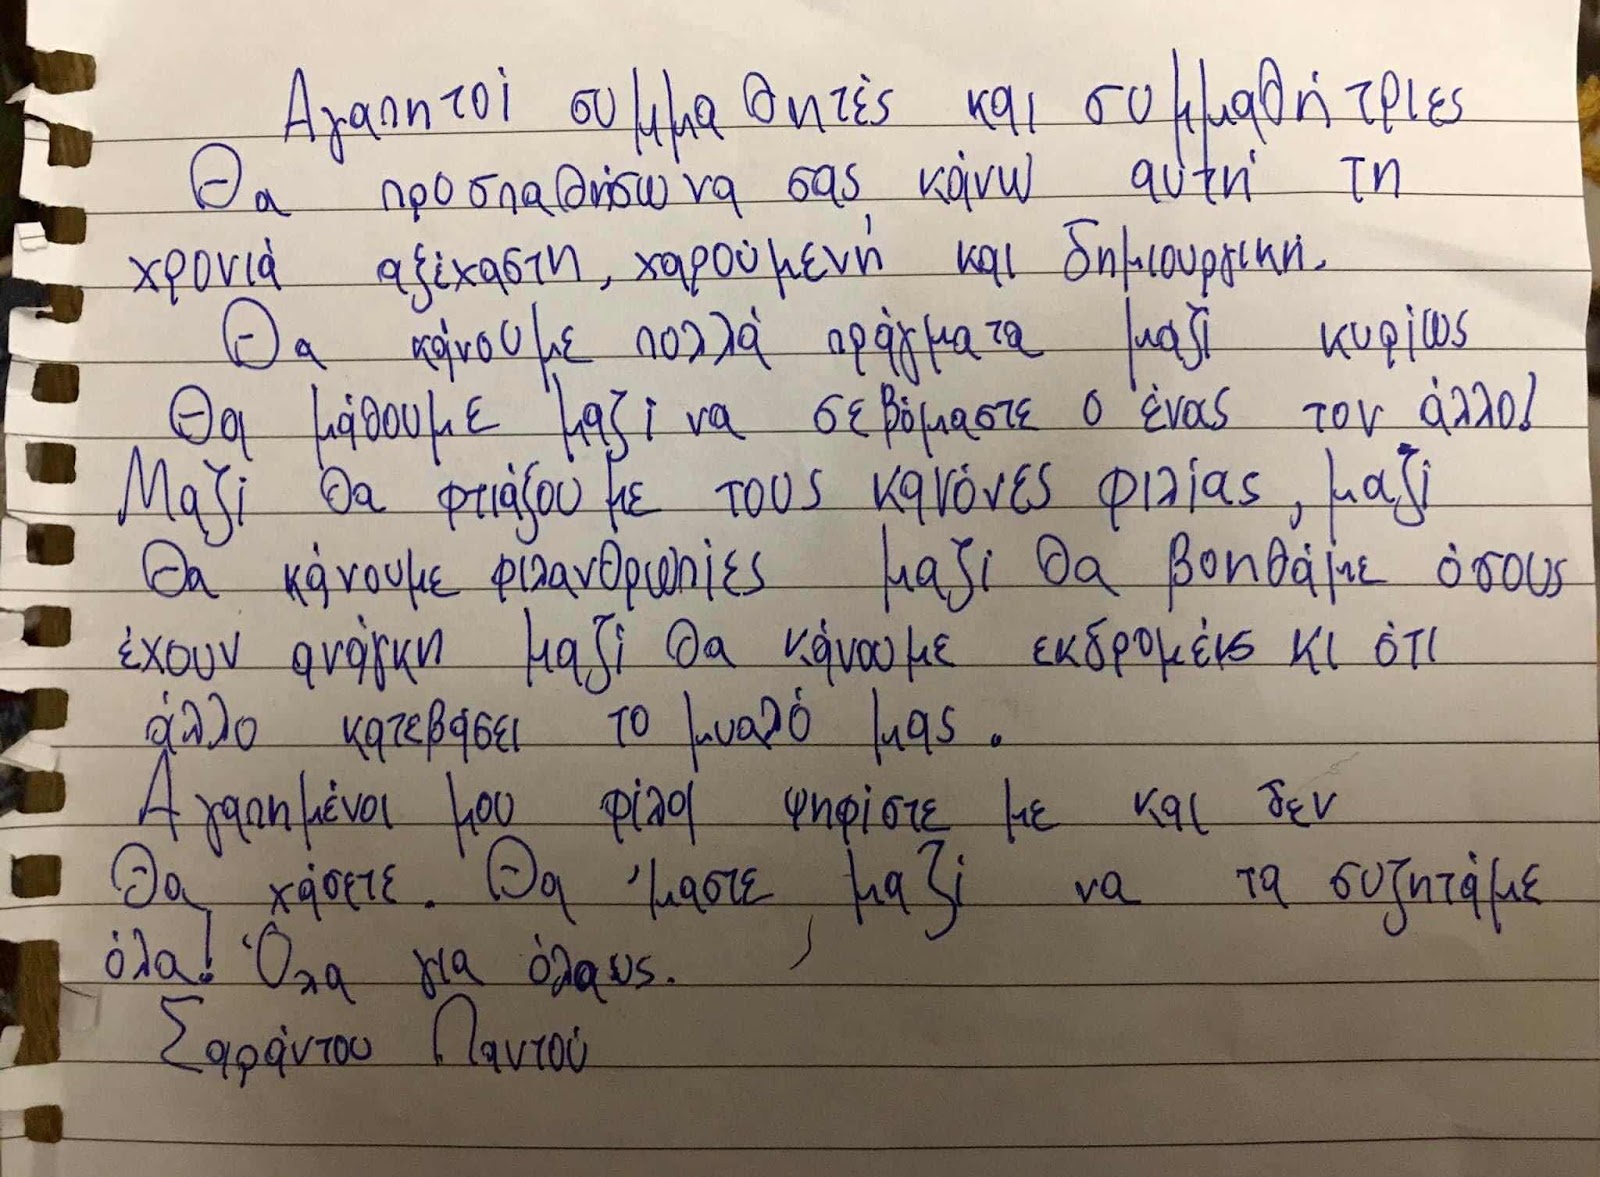 Αγαπητοί συμμαθητές και συμμαθήτριες
Θα προσπαθήσω να σας κάνω αυτή τη
χρονιά αξέχαστη, χαρούμενή και δημιουργική.
Θα κάνουμε πολλά πράγματα μαζί κυρίως
Θα μάθουμε μαζί να σεβόμαστε ο ένας τον άλλο!
Μαζί θα φτιάξουμε τους κανόνες φιλίας, μαζί
θα κάνουμε φιλανθρωπίες μαζί θα βοηθάμε όσους
έχουν ανάγκη μαζί θα κάνουμε εκδρομές κι ότι
άλλο κατεβάσει το μυαλό μας.
Αγαπημένοι μου φίλοι ψηφίστε με και δεν
θα χάσετε. Θα 'μαστε μαζί να τα συζητάμε
όλα! Όλα για όλους.
Σαράντου Παντού